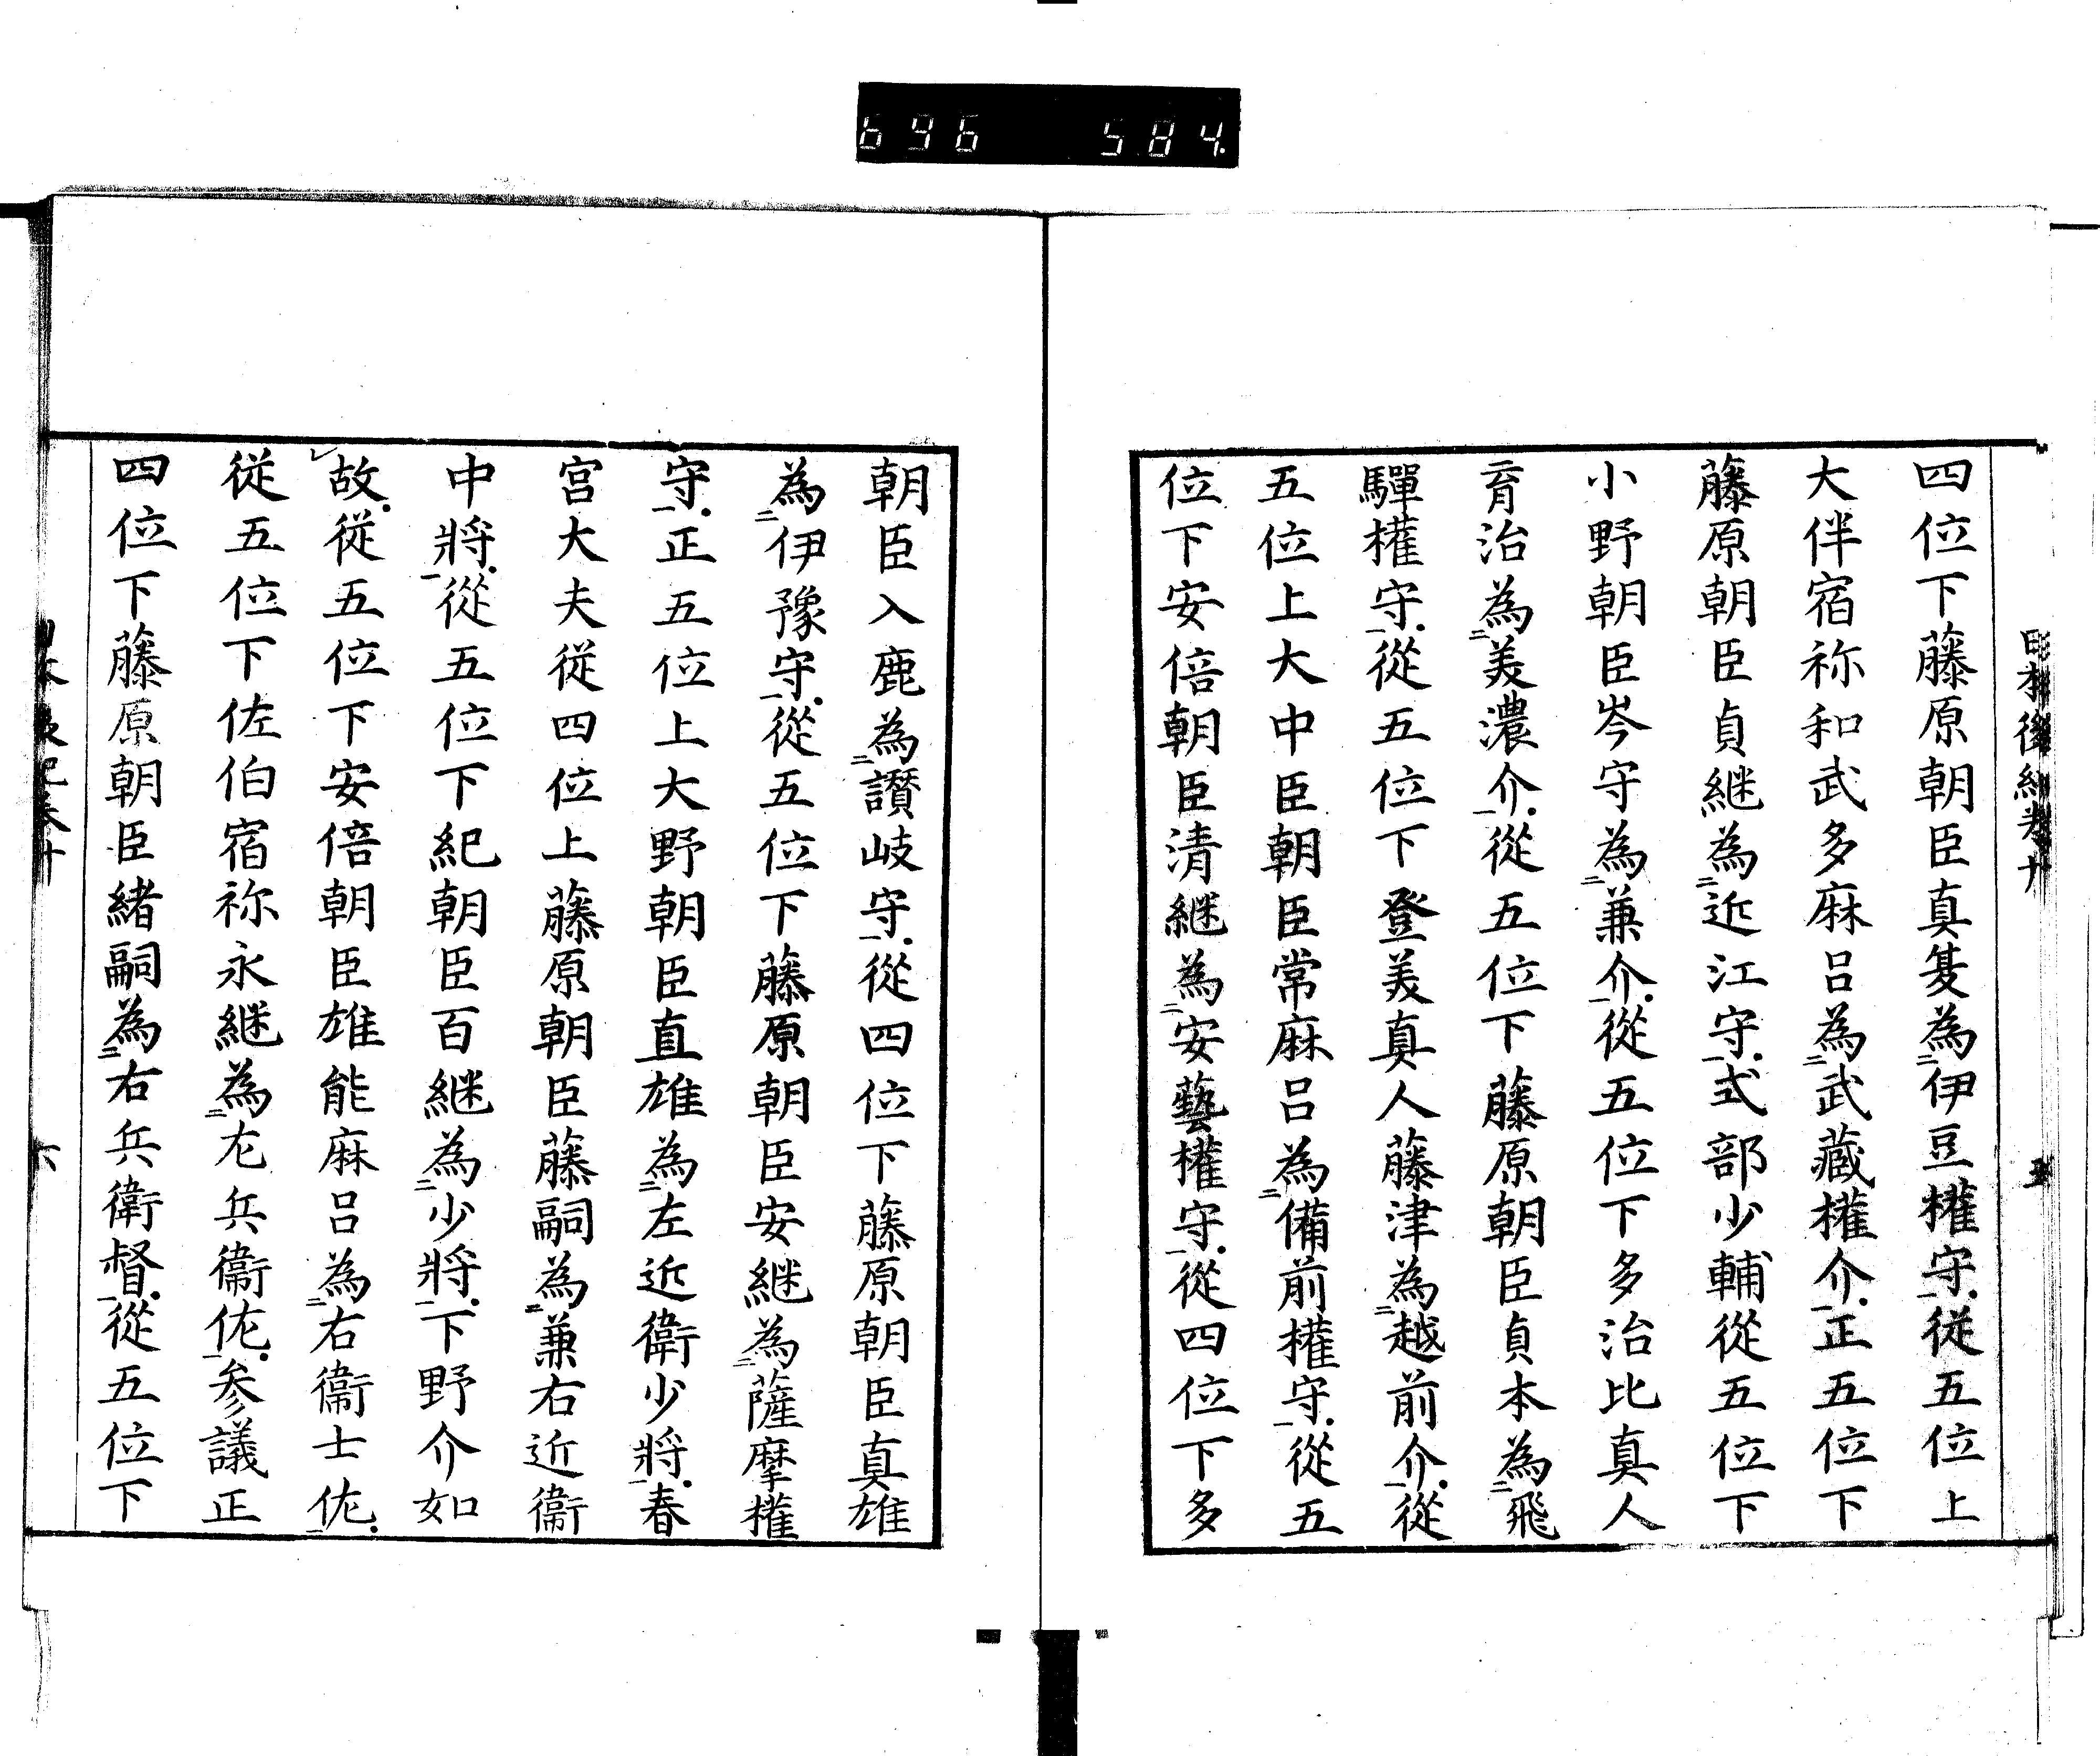 696 584
日本後紀卷十 五
四位下藤原朝臣真夐為伊豆權守從五位上
大伴宿祢和武多麻呂為武藏權介正五位下
藤原朝臣貞継為近江守式部少輔從五位下
小野朝臣岑守為兼介從五位下多治比真人
育治為美濃介從五位下藤原朝臣貞本為飛
驒權守從五位下登美真人藤津為越前介從
五位上大中臣朝臣常麻呂為備前權守從五
位下安倍朝臣清継為安藝權守從四位下多
朝臣入鹿為讃岐守從四位下藤原朝臣真雄
為伊豫守從五位下藤原朝臣安継為薩摩權
守正五位上大野朝臣直雄為左近衛少將春
宮大夫従四位上藤原朝臣藤嗣為兼右近衞
中將從五位下紀朝臣百継為少將下野介如
故從五位下安倍朝臣雄能麻呂為右衞士佐
從五位下佐伯宿祢永継為左兵衞佐参議正
四位下藤原朝臣緒嗣為右兵衛督從五位下
日本後紀卷十 六